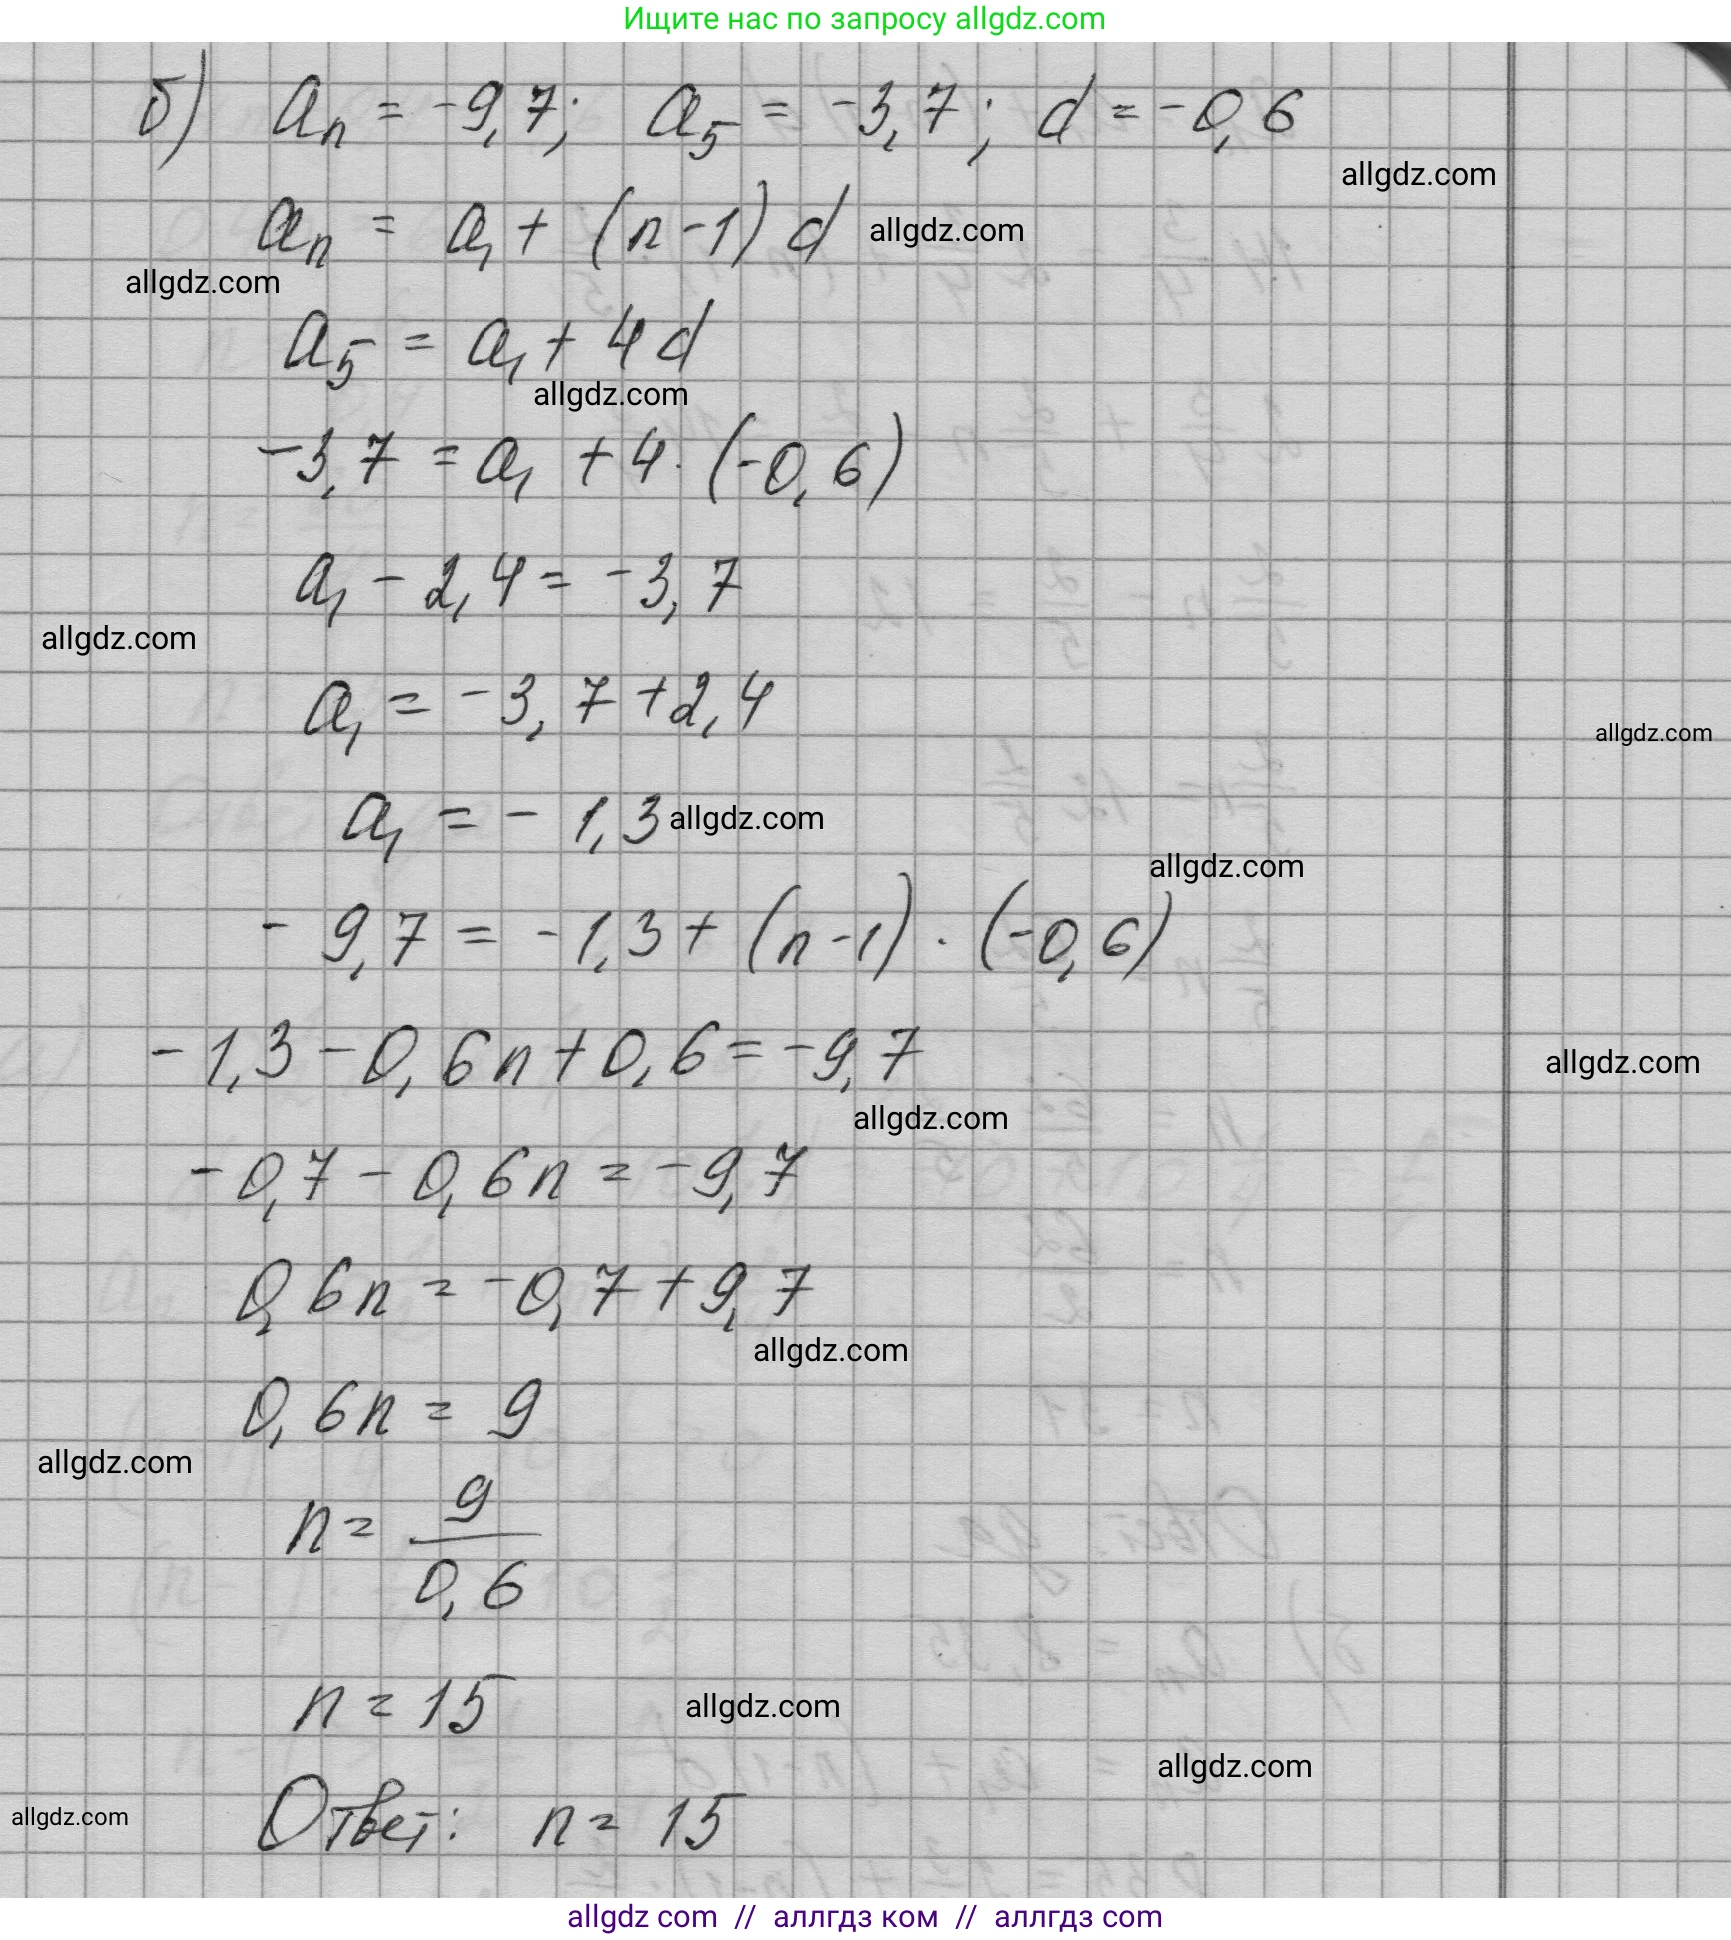 Ищите нас по запросу allgdz.com
б) aₙ = -9,7; a₅ = -3,7; d = -0,6
allgdz.com
aₙ = a₁ + (n-1) d allgdz.com
allgdz.com
a₅ = a₁ + 4d
allgdz.com
-3,7 = a₁ + 4 · (-0,6)
a₁ - 2,4 = -3,7
allgdz.com
a₁ = -3,7 + 2,4
allgdz.com
a₁ = - 1,3 allgdz.com
allgdz.com
- 9,7 = -1,3 + (n-1) · (-0,6)
-1,3 - 0,6n + 0,6 = -9,7
allgdz.com
allgdz.com
-0,7 - 0,6n = -9,7
0,6n = -0,7 + 9,7
allgdz.com
0,6n = 9
allgdz.com
n = 9/0,6
n = 15 allgdz.com
allgdz.com
allgdz.com Ответ: n = 15
allgdz com // аллгдз ком // аллгдз com